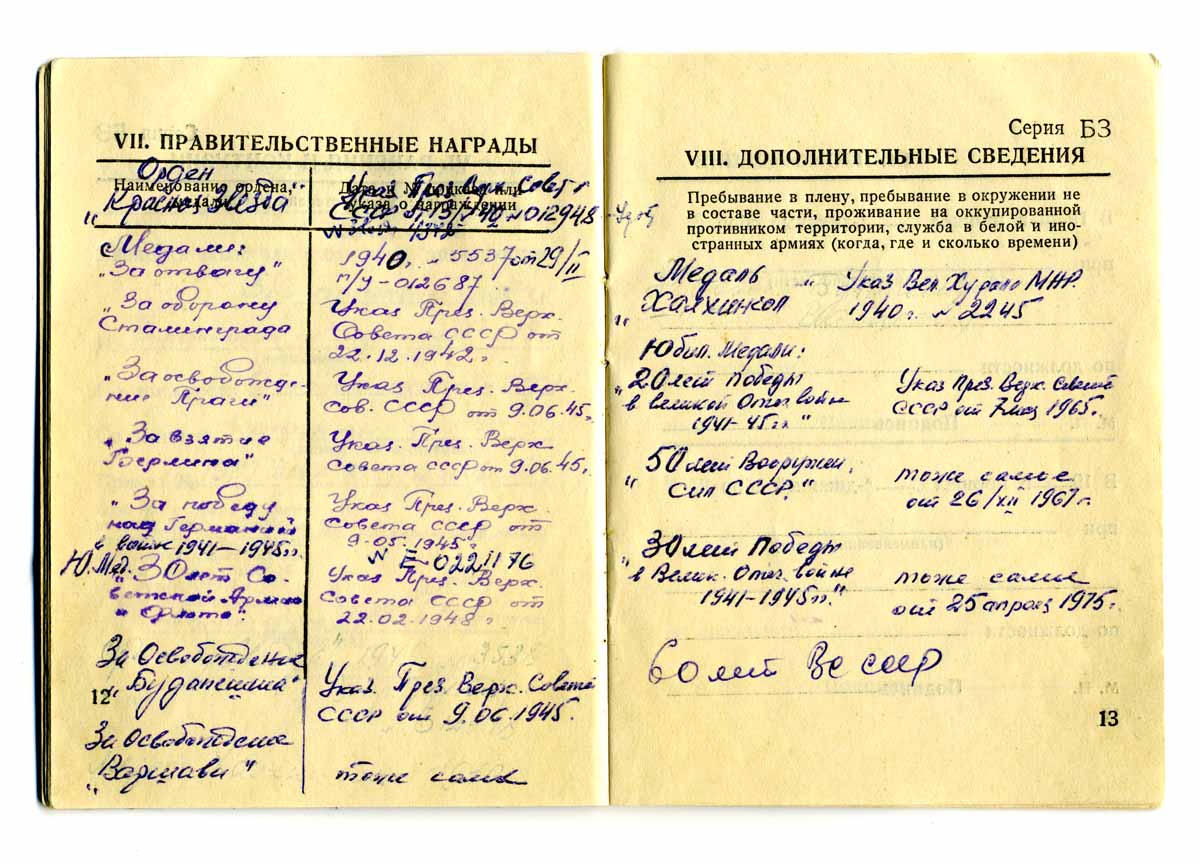 VII. ПРАВИТЕЛЬСТВЕННЫЕ НАГРАДЫ
Орден
Наименование ордена, медали
Дата и № приказа или указа о награждении
"Красная Звезда"
Указ През. Верх. Совет
СССР
№ 012948
Медали:
"За отвагу"
1940г. №5537 от 29/II
п/у-012687.
"За оборону
Сталинграда
Указ През. Верх.
Совета СССР от
22.12.1942г.
"За освобожде-
ние Праги"
Указ През. Верх.
Сов. СССР от 9.06.45г.
"За взятие
Берлина"
Указ. През. Верх
Совета СССР от 9.06.45г.
"За победу
над Германией
в войне 1941-1945гг.
Указ През. Верх.
Совета СССР от
9-05.1945г.
№ Е-0221176
Ю.Мед.
"30 лет Со-
ветской Армии
и Флота".
Указ През. Верх.
Совета СССР от
22.02.1948г.
За Освобождение
"Будапешта"
Указ. През. Верх. Совета
СССР от 9.06.1945.
12
За Освобождение
"Варшавы"
тоже самое
Серия БЗ
VIII. ДОПОЛНИТЕЛЬНЫЕ СВЕДЕНИЯ
Пребывание в плену, пребывание в окружении не
в составе части, проживание на оккупированной
противником территории, служба в белой и ино-
странных армиях (когда, где и сколько времени)
Медаль
"Халхингол"
Указ Вел. Хурала МНР.
1940г. №2245
Юбил. Медали:
"20 лет Победы
в Великой Отеч. войне
1941-45гг."
Указ През. Верх. Совета
СССР от 7 мая 1965г.
"50 лет Вооружен.
Сил СССР."
тоже самое
от 26/XII 1967г.
"30 лет Победы
в Велик. Отеч. войне
1941-1945гг".
тоже самое
от 25 апреля 1975г.
60 лет ВС СССР
13